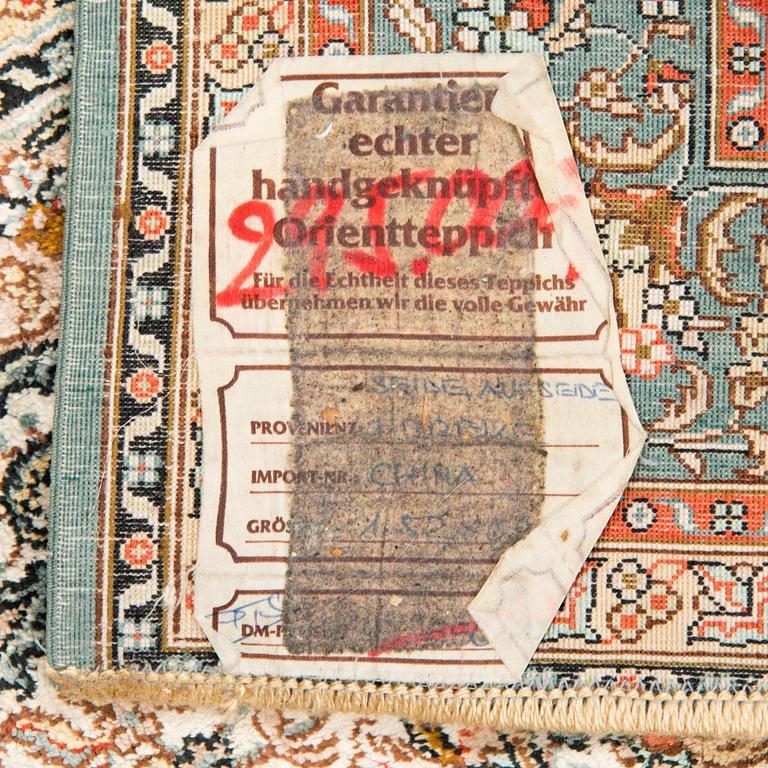 Garantier
echter
handgeknüpft
Orientteppich
Für die Echtheit dieses Teppichs
übernehmen wir die volle Gewähr
SEIDE AUF SEIDE
PROVENIENZ
IMPORT-NR. CHINA
GRÖS
DM-P